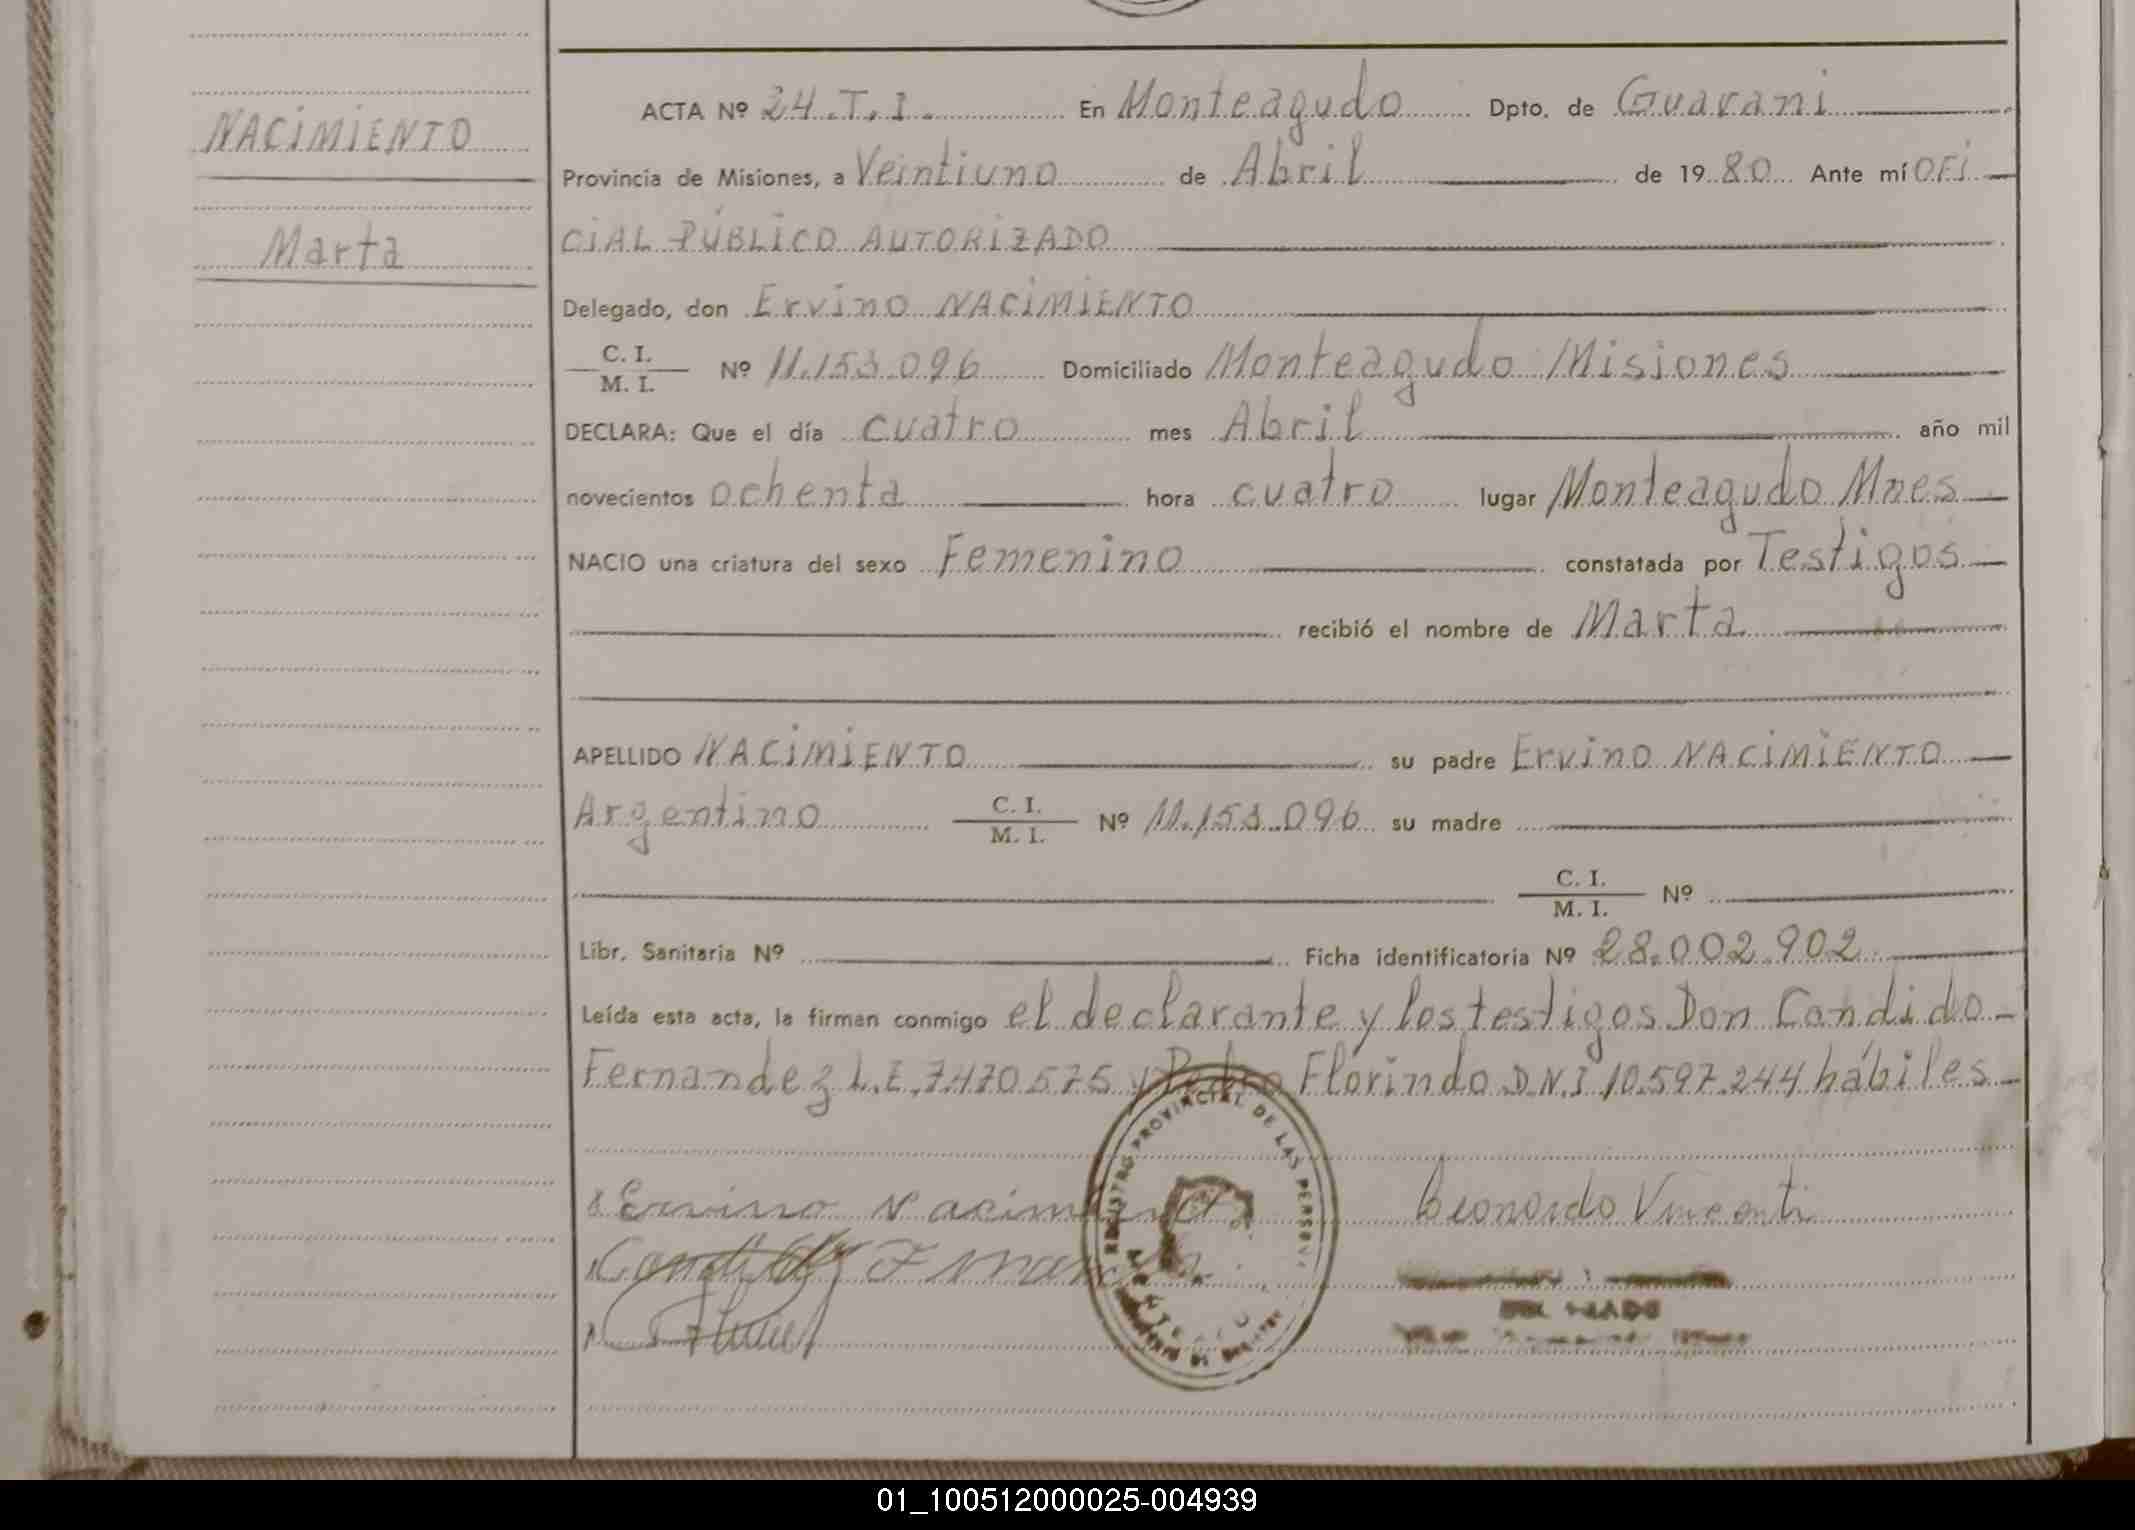 NACIMIENTO
Marta
ACTA Nº 24.T.I. En Monteagudo Dpto. de Guarani
Provincia de Misiones, a Veintiuno de Abril de 1980 Ante mí OFI
CIAL PÚBLICO AUTORIZADO
Delegado, don Ervino NACIMIENTO
C. I.
M. I. Nº 11.153.096 Domiciliado Monteagudo Misiones
DECLARA: Que el día cuatro mes Abril año mil
novecientos ochenta hora cuatro lugar Monteagudo Mnes
NACIO una criatura del sexo Femenino constatada por Testigos
recibió el nombre de Marta
APELLIDO NACIMIENTO su padre Ervino NACIMIENTO
Argentino C. I. M. I. Nº 11.153.096 su madre
C. I.
M. I. Nº
Libr. Sanitaria Nº Ficha identificatoria Nº 28.002.902
Leída esta acta, la firman conmigo el declarante y los testigos Don Candido
Fernandez L.E. 7.470.575 y Pedro Florindo D.N.I 10.597.244 hábiles
REGISTRO PROVINCIAL DE LAS PERSON
Ervino Nacimiento
Leonardo Vincenti
01_100512000025-004939